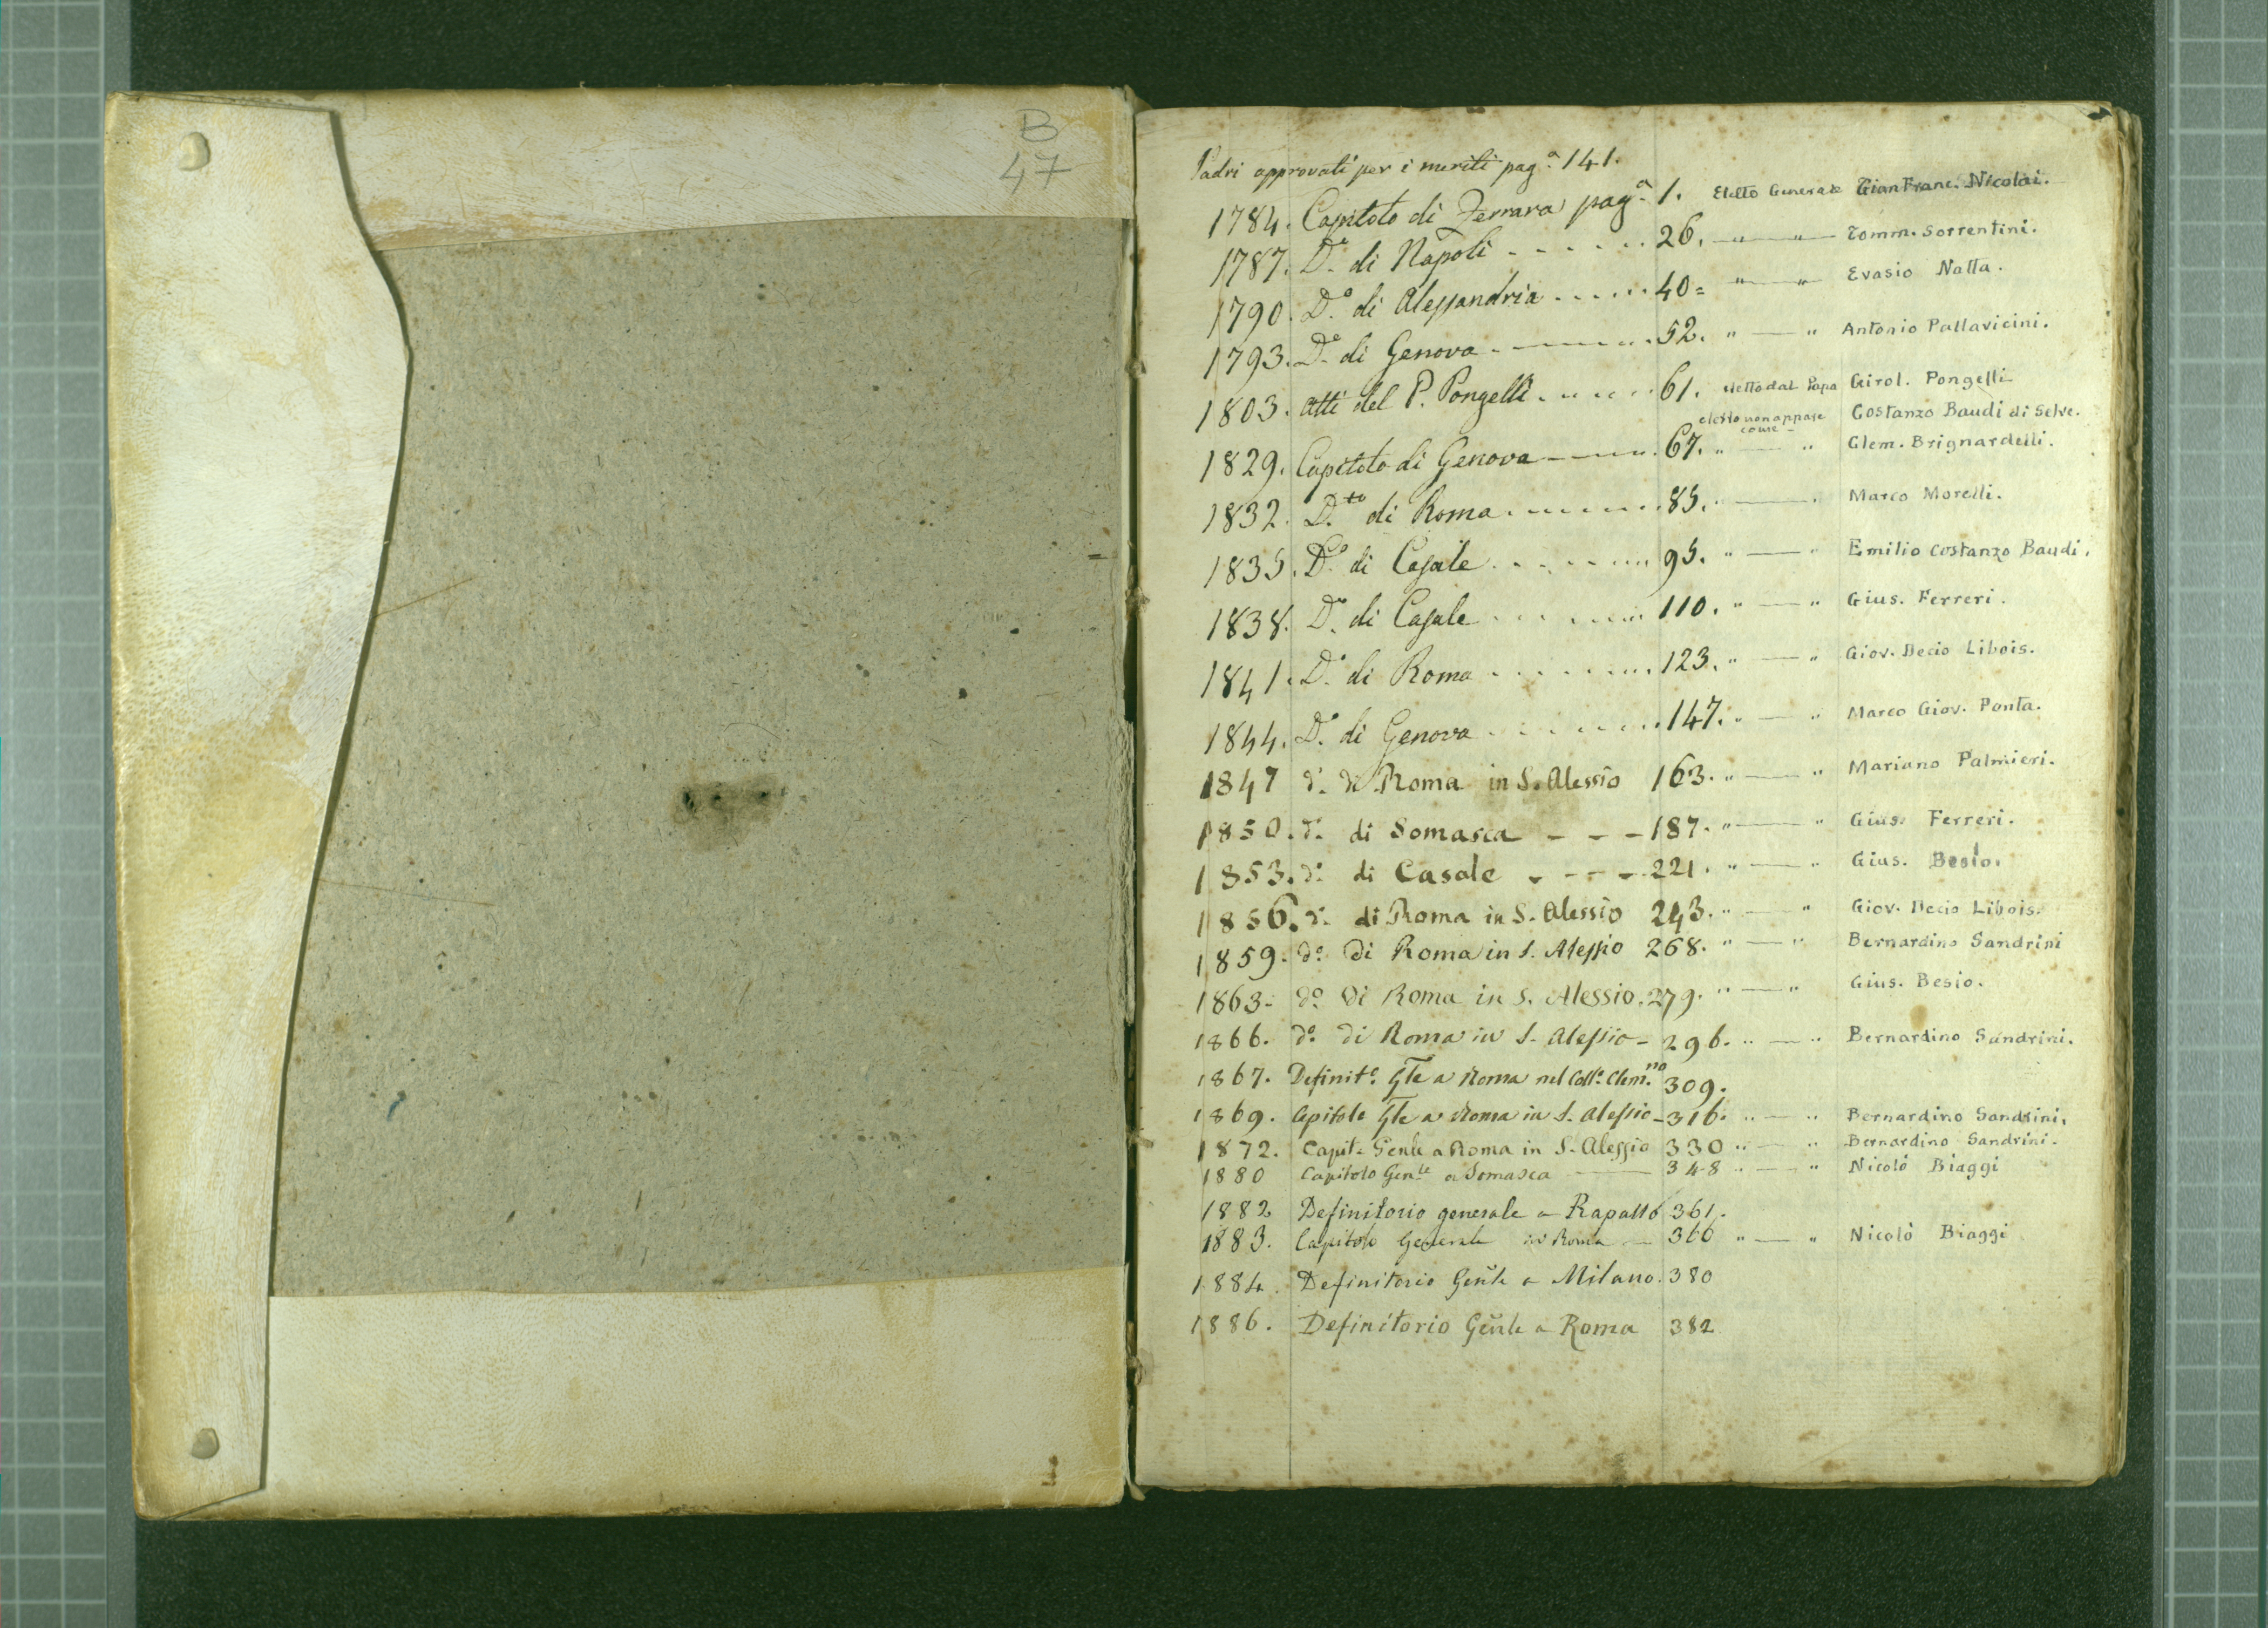 B
47
Padri approvati per i meriti pag.a 141.
1784. Capitolo di Ferrara pag.a 1. Eletto Generale GianFranc. Nicolai.
1787. D.o di Napoli - - - - - - 26. — " — " — Tomm. Sorrentini.
1790. D.o di Alessandria - - - - - - 40= " — " Evasio Natta.
1793. D.o di Genova - — - - - - 52. " — " Antonio Pallavicini.
1803. Atti del P. Pongelli - - - - - 61. eletto dal Papa Girol. Pongelli
eletto non appare come - Costanzo Baudi di Selve.
1829. Capitolo di Genova — - - - 67. " — " Clem. Brignardelli.
1832. D.to di Roma - - - - - - 85. " — " Marco Morelli.
1835. D.o di Casale - - - - - - 95. " — " Emilio Costanzo Baudi.
1838. D.o di Casale - - - - - - 110. " — " Gius. Ferreri.
1841. D.o di Roma - - - - - - 123. " — " Giov. Decio Libois.
1844. D.o di Genova - - - - - - 147. " — " Marco Giov. Ponta.
1847 d.o di Roma in S. Alessio 163. " — " Mariano Palmieri.
1850. d.o di Somasca - - - 187. " — " Gius. Ferreri.
1853. d.o di Casale - - - - 221. " — " Gius. Besio.
1856. d.o di Roma in S. Alessio 243. " — " Giov. Decio Libois.
1859. d.o di Roma in S. Alessio 268. " — " Bernardino Sandrini
1863- d.o di Roma in S. Alessio. 279. " — " Gius. Besio.
1866. d.o di Roma in S. Alessio - 296. " — " Bernardino Sandrini.
1867. Definit.o Gle a Roma nel Coll.o Clem.no 309.
1869. Capitolo Gle a Roma in S. Alessio - 316. " — " Bernardino Sandrini.
1872. Capit.o Genle a Roma in S. Alessio 330 " — " Bernardino Sandrini.
1880 Capitolo Gen.le a Somasca — 348 " — " Nicolò Biaggi
1882 Definitorio generale a Rapallo 361.
1883. Capitolo Generale in Roma — 366 " — " Nicolò Biaggi
1884. Definitorio Genle a Milano. 380
1886. Definitorio Genle a Roma 382